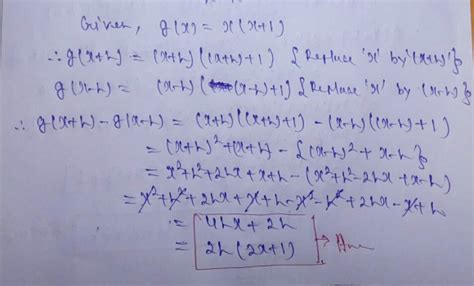 Given, g(x) = x(x+1)
∴ g(x+h) = (x+h)((x+h)+1) {Replace 'x' by '(x+h)'}
g(x-h) = (x-h)((x-h)+1) {Replace 'x' by (x-h)}
∴ g(x+h) - g(x-h) = (x+h)((x+h)+1) - (x-h)((x-h)+1)
= (x+h)²+(x+h) - {(x-h)² + x-h}
= x²+h²+2hx+x+h - (x²+h²-2hx+x-h)
= x²+h²+2hx+x+h-x²-h²+2hx-x+h
= 4hx + 2h
= 2h(2x+1) → Ans